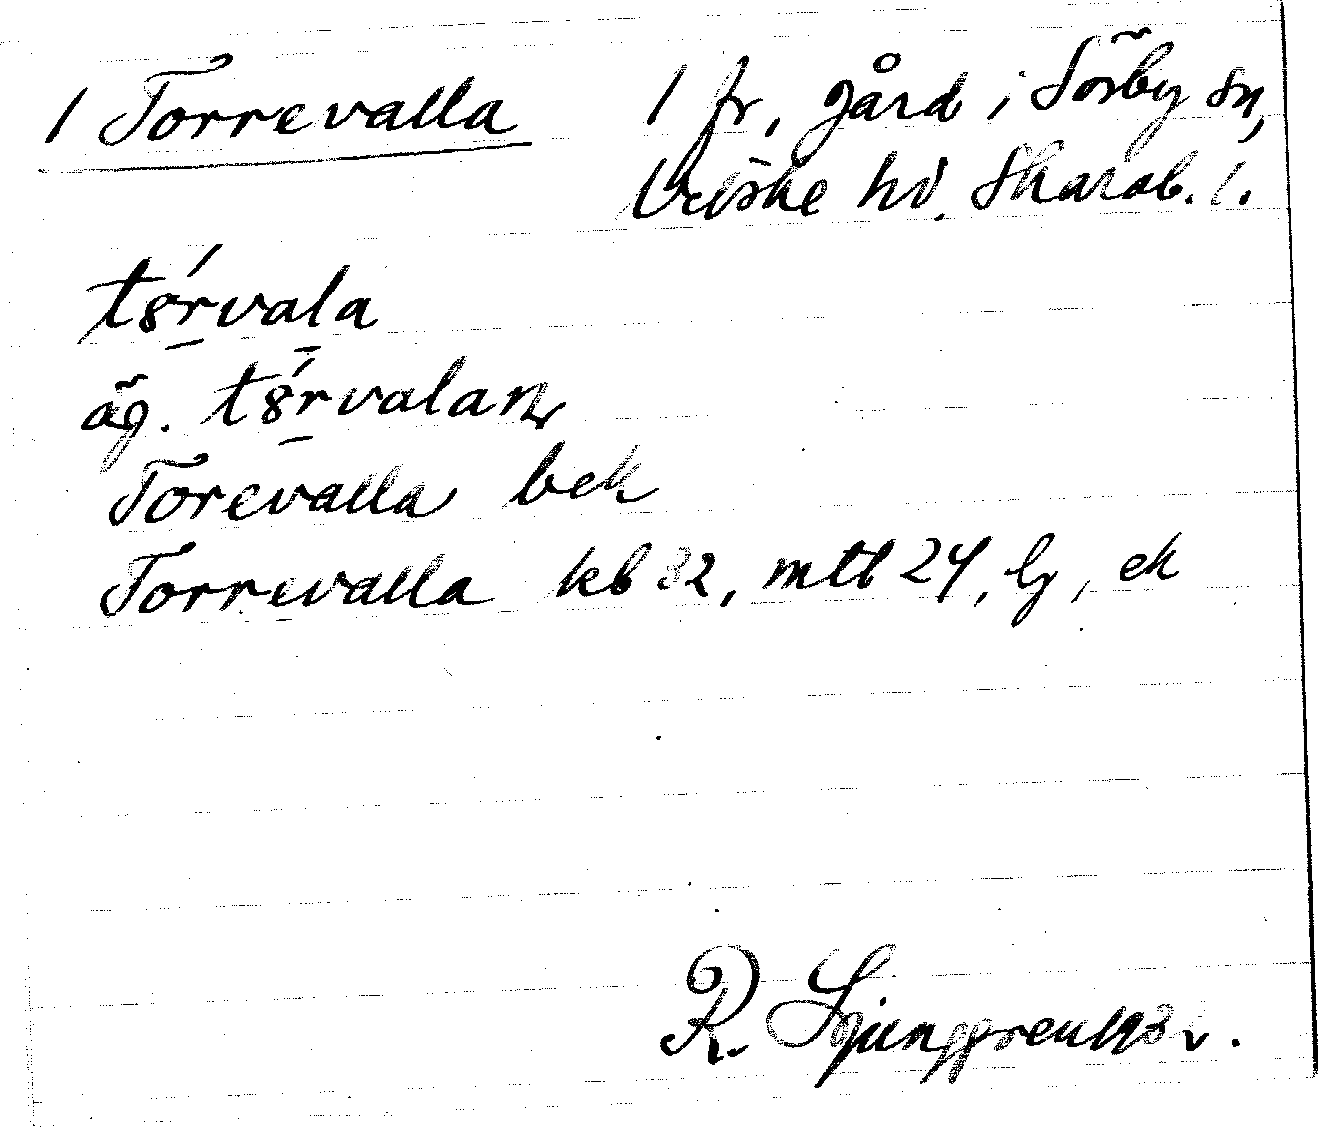 1 Torrevalla
1 fr, gård i Sörby sn,
Vilske hd. Skarab. l.
tɤ́rvala
äg. tɤ́rvalan
Torevalla bek
Torrevalla kb 32, mtl 24, lj, ek
R. Ljunggren 1932.